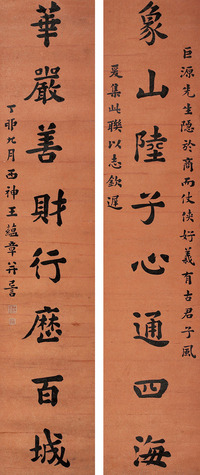 巨源先生隱於商而任俠好義有古君子風
象山陸子心通四海
爰集此聯以志欽遲
華嚴善財行歷百城
丁卯九月西神王蘊章并書